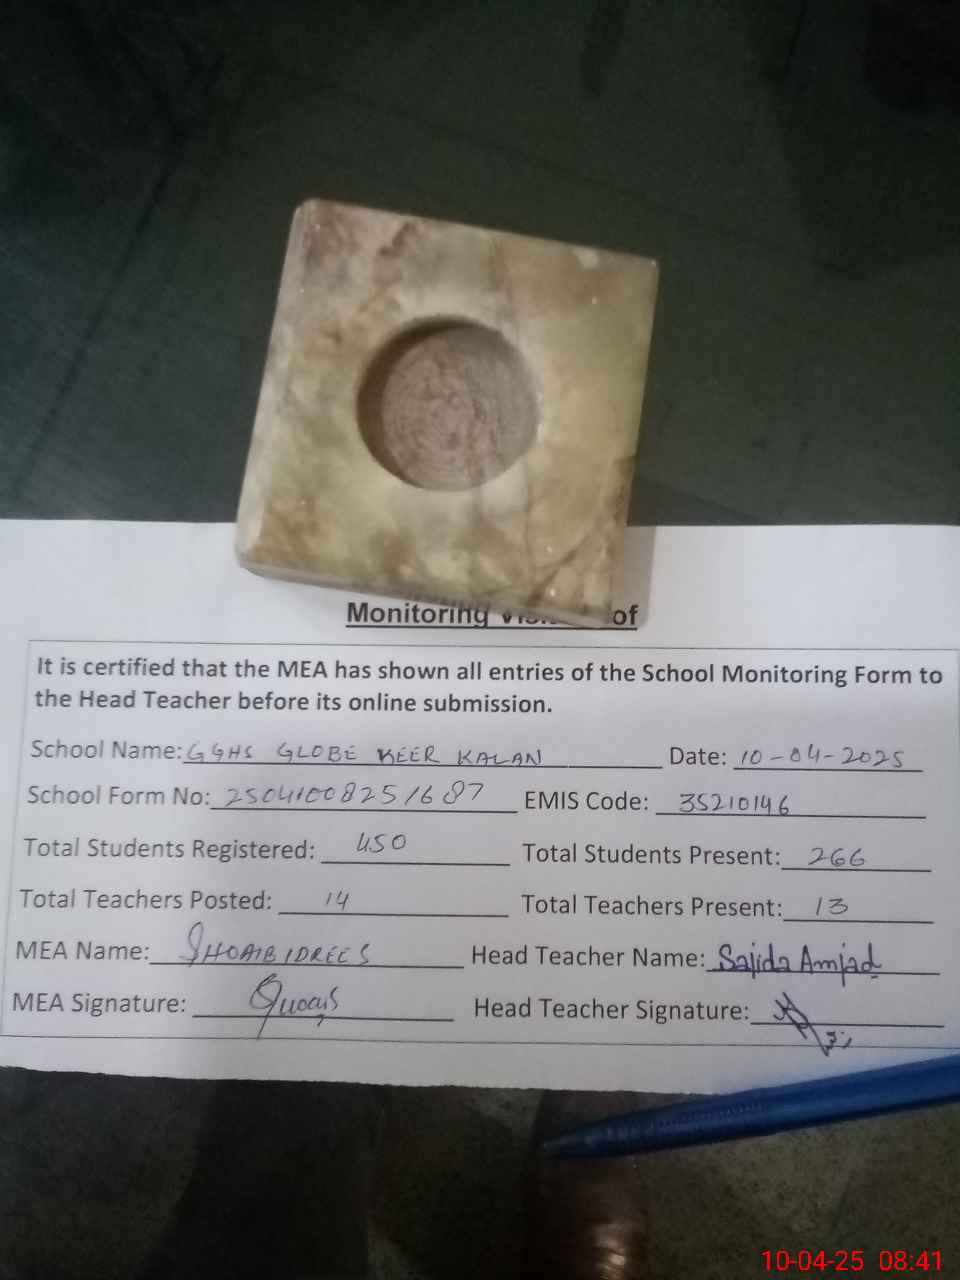 Monitoring of
It is certified that the MEA has shown all entries of the School Monitoring Form to
the Head Teacher before its online submission.
School Name: GGHS GLOBE KEER KALAN Date: 10-04-2025
School Form No: 25041008251687 EMIS Code: 35210146
Total Students Registered: 450 Total Students Present: 266
Total Teachers Posted: 14 Total Teachers Present: 13
MEA Name: SHOAIB IDREES Head Teacher Name: Sajida Amjad
MEA Signature: Head Teacher Signature:
10-04-25 08:41